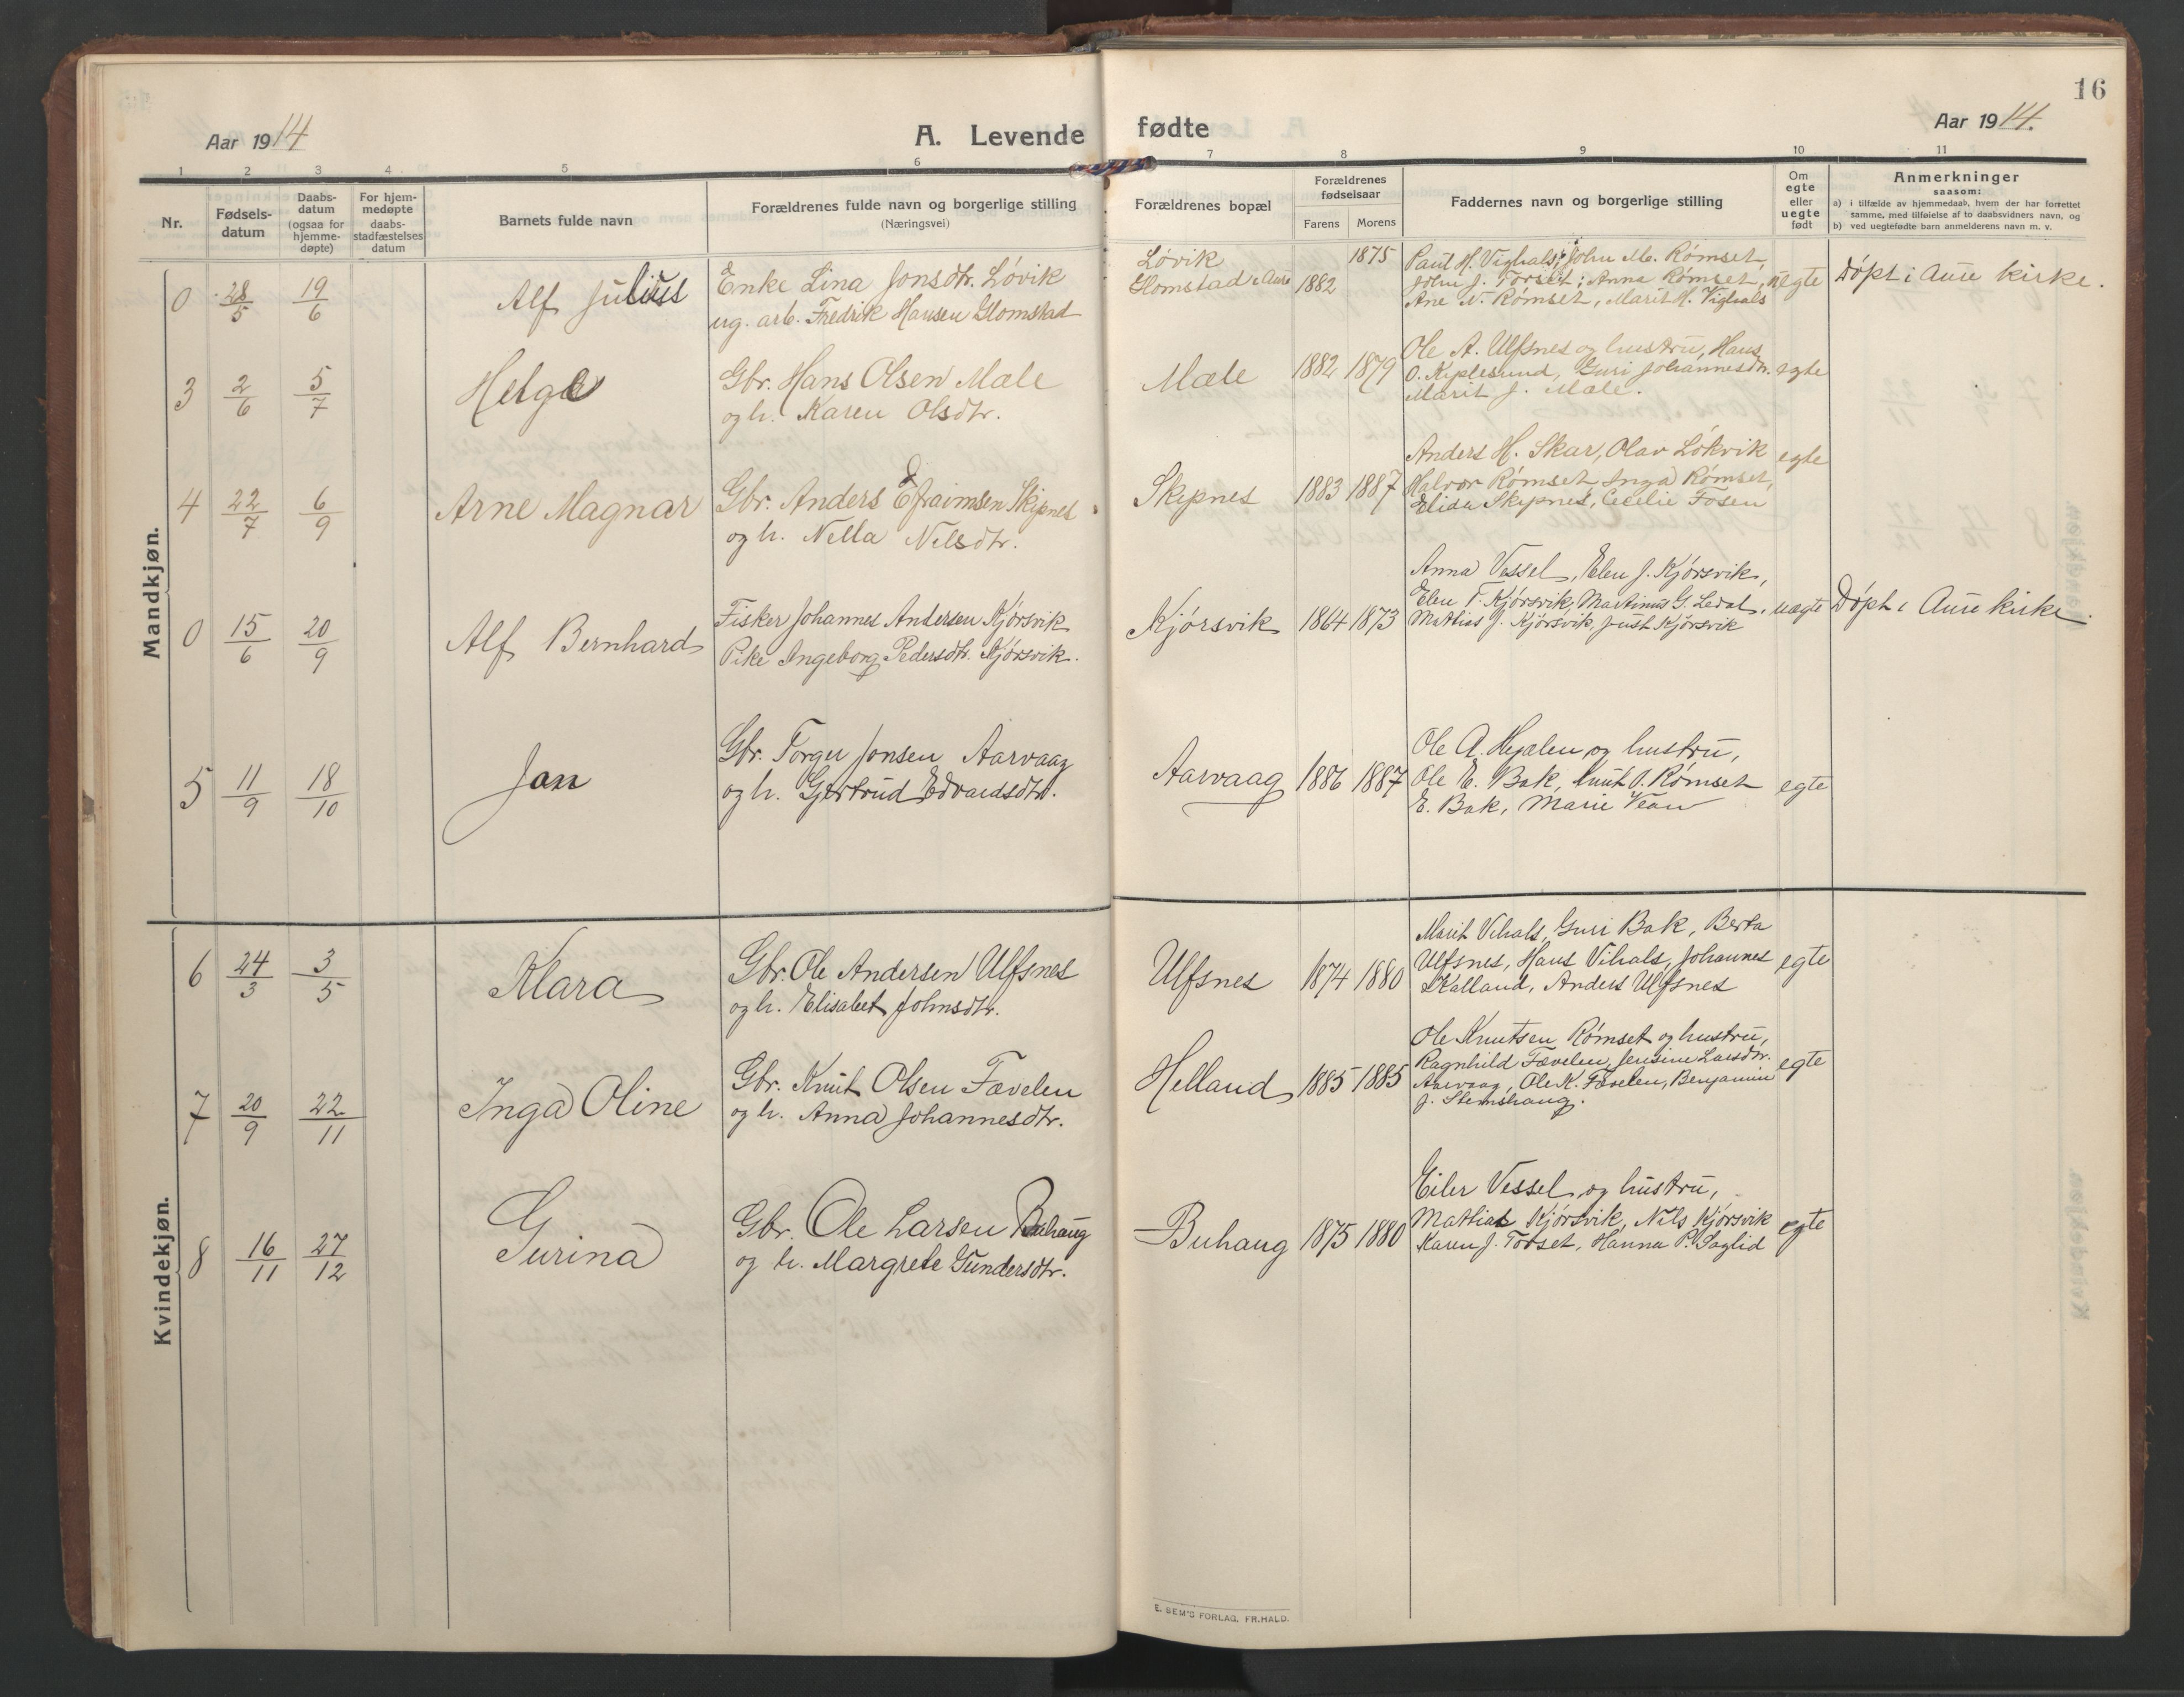 16
Aar 1914
A. Levende fødte
Aar 1914.
1 2 3 4 5 6 7 8 9 10 11
Nr.
Fødsels-
datum
Daabs-
datum
(ogsaa for
hjemme-
døpte)
For hjem-
medøpte
daabs-
stadfæstelses
datum
Barnets fulde navn
Forældrenes fulde navn og borgerlige stilling
(Næringsvei)
Forældrenes bopæl
Forældrenes
fødselsaar
Farens Morens
Faddernes navn og borgerlige stilling
Om
egte
eller
uegte
født
Anmerkninger
saasom:
a) i tilfælde av hjemmedaab, hvem der har forrettet
samme, med tilføielse af to daabsvidners navn, og
b) ved uegtefødte barn anmelderens navn m. v.
Mandkjøn.
0 28/5 19/6 Alf Julius
Enke Lina Jonsdtr. Løvik
ug. arb. Fredrik Hansen Glomstad
Løvik
Glomstad i Aure
1882 1875
Paul H. Vighals, John M. Rømset,
John J. Torset; Anna Rømset,
Ane N. Rømset, Marit H. Vighals
uegte
Døpt i Aure kirke.
3 2/6 5/7 Helge
Gbr. Hans Olsen Mæle
og h. Karen Olsdtr.
Mæle 1882 1879
Ole A. Ulfsnes og hustru, Hans
O. Kiplesund, Guri Johannesdtr.
Marit J. Mæle.
egte
4 22/7 6/9 Arne Magnar
Gbr. Anders Efraimsen Skipnes
og h. Nella Nilsdtr.
Skipnes 1883 1887
Anders H. Skar, Olav Løkvik
Halvor Rømset, Inga Rømset,
Elida Skipnes, Cecilie Fosen
egte
0 15/6 20/9 Alf Bernhard
Fisker Johannes Andersen Kjørsvik
Pike Ingeborg Pedersdtr. Kjørsvik.
Kjørsvik 1864 1873
Anna Vessel, Elen J. Kjørsvik,
Elen T. Kjørsvik, Martinus G. Ledal,
Mathias J. Kjørsvik, Just Kjørsvik
uegte
Døpt i Aure kirke.
5 11/9 18/10 Jon
Gbr. Torger Jonsen Aarvaag
og h. Gjertrud Edvardsdtr.
Aarvaag 1886 1887
Ole A. Hjalen og hustru,
Ole E. Bak, Knut O. Rømset
E. Bak, Marie Vean
egte
Kvindekjøn.
6 24/3 3/5 Klara
Gbr. Ole Andersen Ulfsnes
og h. Elisabet Johnsdtr.
Ulfsnes 1874 1880
Marit Vihals, Guri Bak, Berta
Ulfsnes, Hans Vihals, Johannes
Kalland, Anders Ulfsnes
egte
7 20/9 22/11 Inga Oline
Gbr. Knut Olsen Fævelen
og h. Anna Johannesdtr.
Helland 1885 1885
Ole Knutsen Rømset og hustru,
Ragnhild Fævelen, Jensine Larsdtr.
Aarvaag, Ole K. Fævelen, Benjamin
J. Stemshaug.
egte
8 16/11 27/12 Gurina
Gbr. Ole Larsen Buhaug
og h. Margrete Gundersdtr.
Buhaug 1875 1880
Eiler Vessel og hustru,
Mathias Kjørsvik, Nils Kjørsvik
Karen J. Torset, Hanna P. Saglid
egte
E. SEM'S FORLAG, FR.HALD.